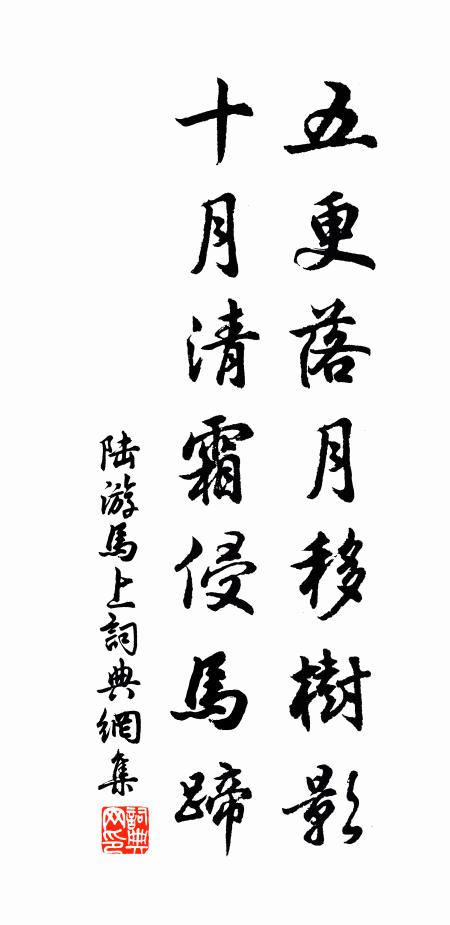 五更落月移樹影
十月清霜侵馬蹄
陸游馬上詞典網集
詞典网印